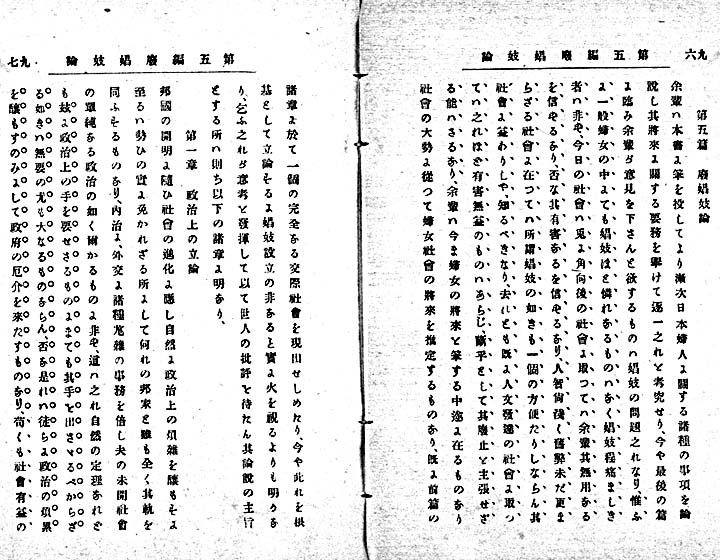 第五編廢娼妓論
九六
第五篇　廢娼妓論
余輩ハ本書ニ筆を投してより漸次日本婦人ニ關する諸種の事項を論
說し其將來ニ關する要務を擧けて逐一之れを考究せり、今や最後の篇
ニ臨み余輩が意見を下さんと欲するものハ娼妓の問題之れなり、惟ふ
ニ一般婦女の中ニても娼妓ほど憐れなるものハなく娼妓程痛ましき
者ハ非ず、今日の社會ハ兎ニ角向後の社會ニ取つてハ余輩其無用なる
を信ずるなり、否な其有害なるを信ずるなり、人智尙淺く舊弊未だ更ま
らざる社會ニ在つてハ所謂娼妓の如きも一個の方便たりしならん其
社會ニ益ありしや、知るべきなり、去れども既ニ人文發達の社會ニ取つ
てハ之れほど有害無益のものハあらじ、斷乎として其廢止を主張せざ
る能ハざるなり、余輩ハ今ま婦女の將來を筆する中途ニ在るものなり
社會の大勢ニ從つて婦女社會の將來を推定するものなり、既ニ前篇の
第五編廢娼妓論
九七
諸章ニ於て一個の完全なる交際社會を現出せしめたり、今や此れを根
基として立論するニ娼妓設立の非なると實ニ火を視るよりも明らな
り、乞ふ之れが意考を發揮して以て世人の批評を待たん其論說の主旨
とする所ハ則ち以下の諸章ニ明なり、
第一章　政治上の立論
邦國の開明ニ隨ひ社會の進化ニ應し自然ニ政治上の煩雜を釀もすニ
至るハ勢ひの實ニ免かれざる所ニして何れの邦家と雖も全く其軌を
同ふするものなり、內治ニ、外交ニ諸種尨雜の事務を倍し夫の未開社會
の單純なる政治の如く爾かるものニ非ず、道ハ之れ自然の定理なれど
も妓ニ政治上の手を要せざるものニまでも其手を出さゞるべからざ
る如きハ無要の尤も大なるものならん否な是れハ徒らニ政治の煩累
を釀もすのみニして政府の厄介を來たすものなり、苟くも社會有益の